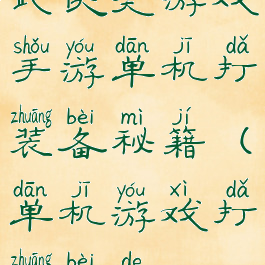 shǒu yóu dān jī dǎ
手游单机打
zhuāng bèi mì jí
装备秘籍（
dān jī yóu xì dǎ
单机游戏打
zhuāng bèi de